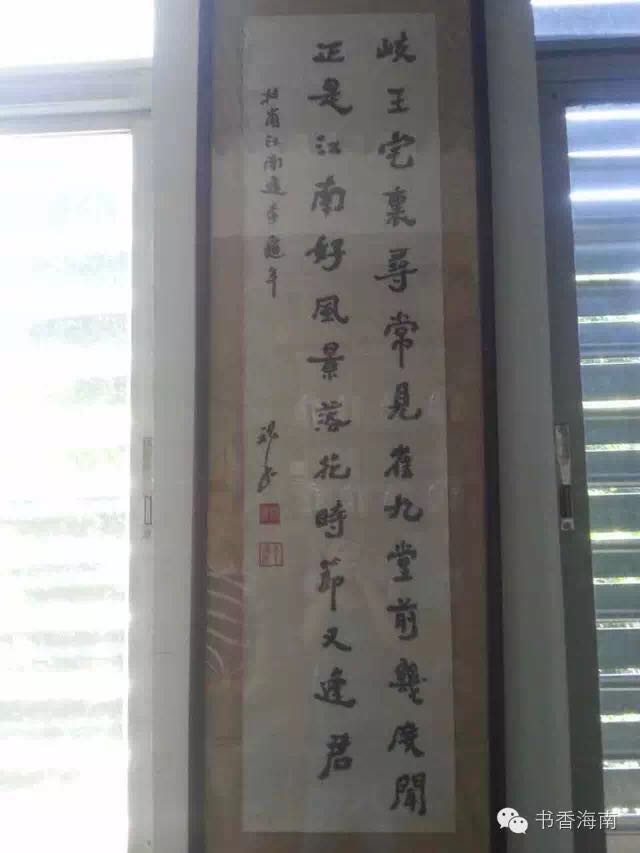 岐王宅裏尋常見崔九堂前幾度聞
正是江南好風景落花時節又逢君
杜甫江南逢李龜年
书香海南